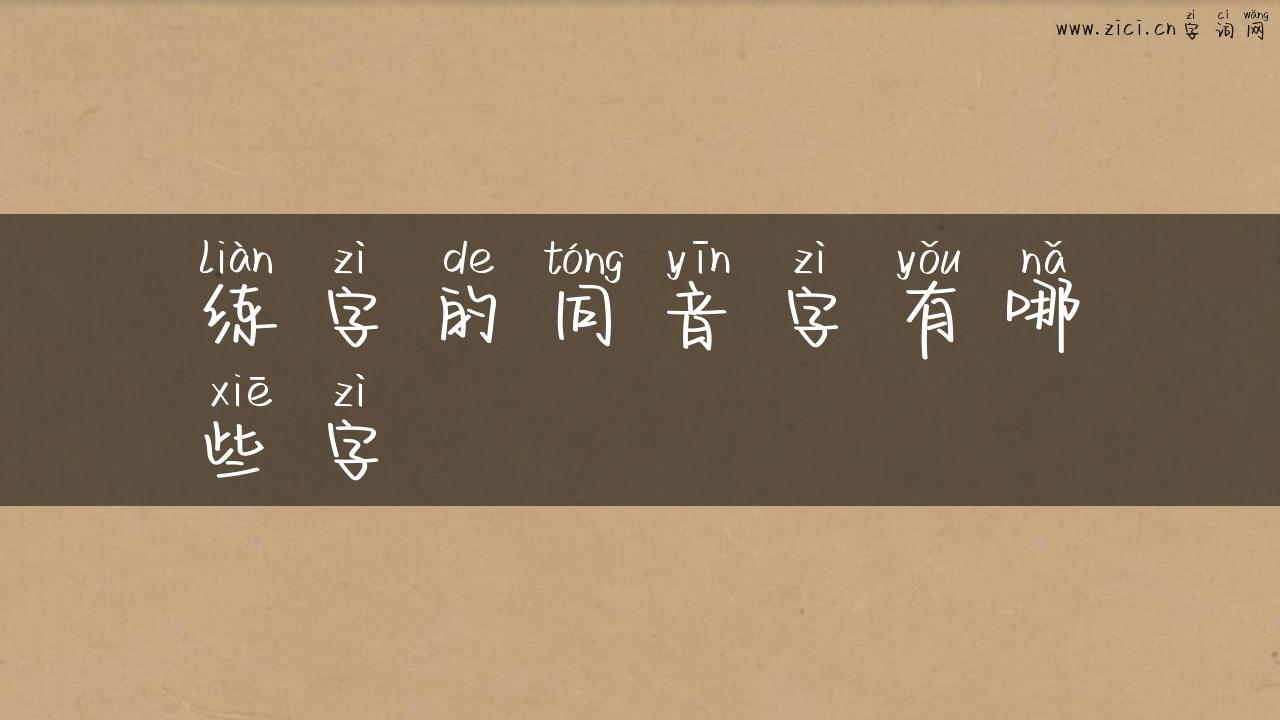 zì cí wǎng
www.zici.cn 字 词 网
liàn zì de tóng yīn zì yǒu nǎ
练 字 的 同 音 字 有 哪
xiē zì
些 字